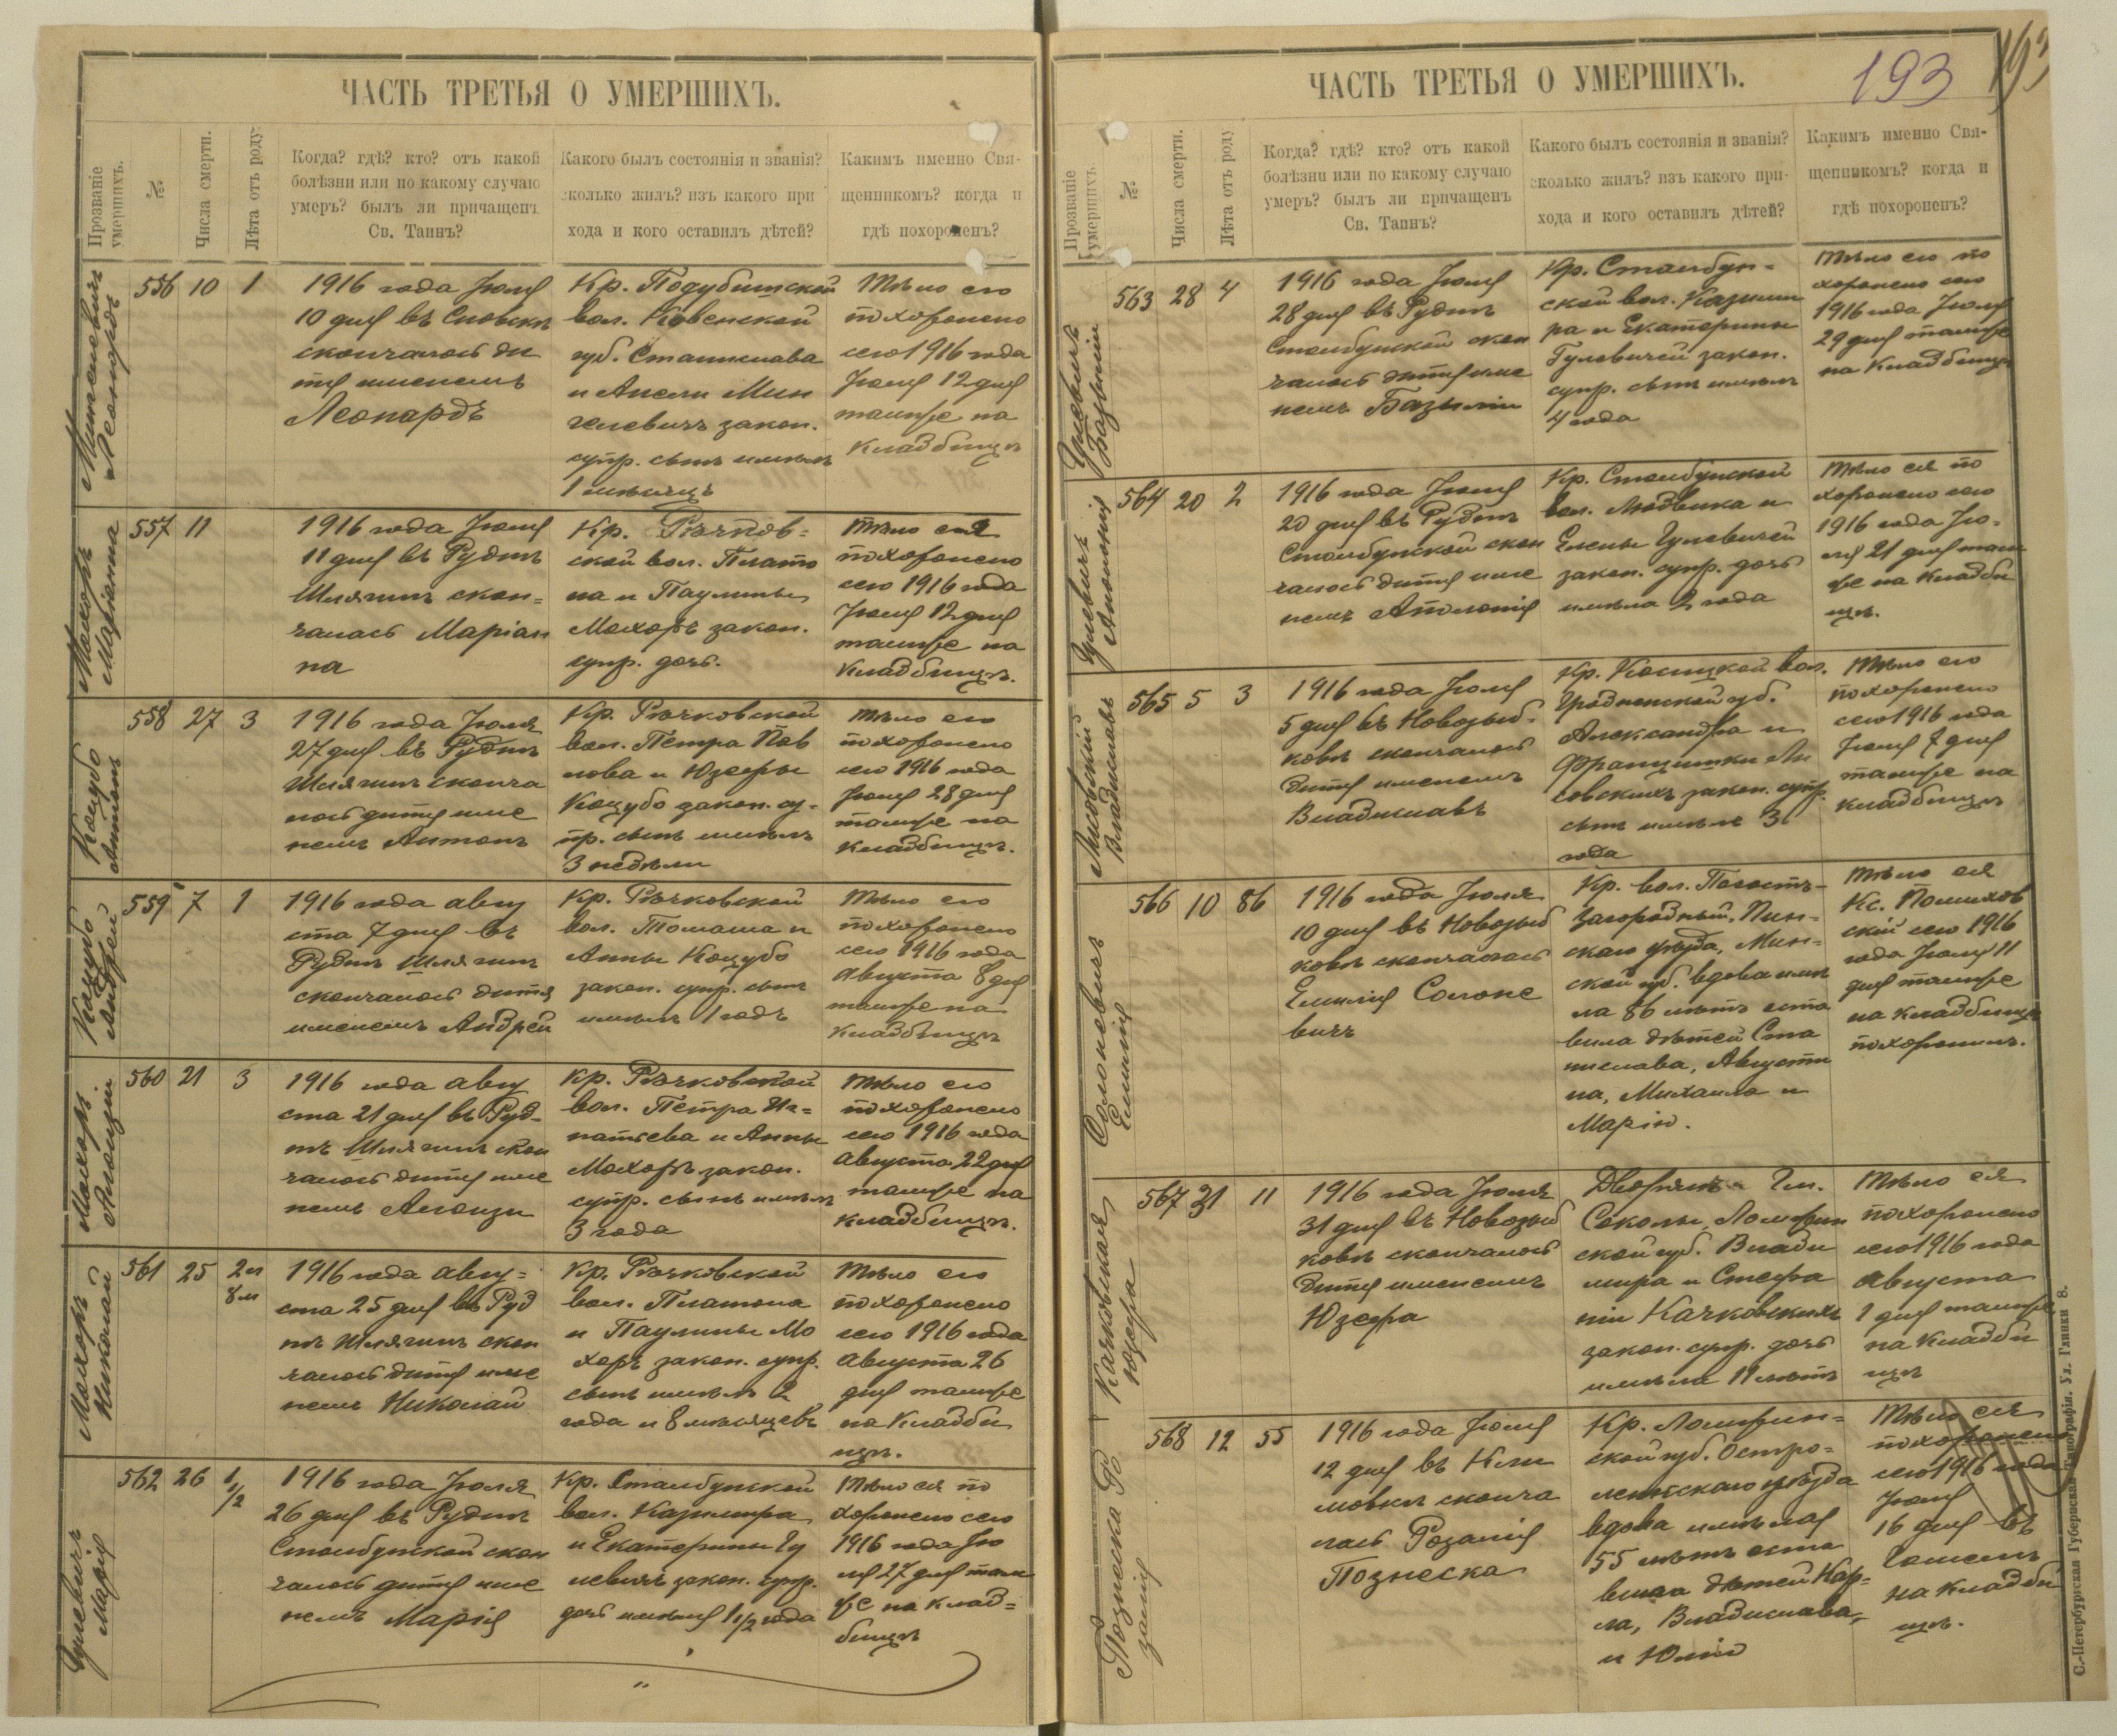 ЧАСТЬ ТРЕТЬЯ О УМЕРШИХЪ.
Прозваніе
умершихъ.
№
Числа смерти.
Лѣта отъ роду.
Когда? гдѣ? кто? отъ какой
болѣзни или по какому случаю
умеръ? былъ ли причащенъ
Св. Таинъ?
Какого былъ состоянія и званія?
сколько жилъ? изъ какого при
хода и кого оставилъ дѣтей?
Какимъ именно Свя-
щенникомъ? когда и
гдѣ похороненъ?
Леонардъ
556 10 1
1916 года Іюля
10 дня въ
скончалось ди
тя именемъ
Леонардъ
Кр. Подубисской
вол. Ковенской
губ. Станислава
и Анели Мин
гелевичъ закон.
супр. сынъ имѣлъ
1 мѣсяцъ
Тѣло его
похоронено
сего 1916 года
Іюля 12 дня
тамже на
кладбищѣ
Мохоръ
Маріанна
557 11
1916 года Іюля
11 дня въ Руднѣ
Шлягинѣ скон=
чалась Маріан
на
Кр. Рѣчков=
ской вол. Плато
на и Паулины
Мохоръ закон.
супр. дочь.
Тѣло ея
похоронено
сего 1916 года
Іюля 12 дня
тамже на
кладбищѣ.
Коцубо
Антонъ
558 27 3
1916 года Іюля
27 дня въ Руднѣ
Шлягинѣ сконча
лось дитя име
немъ Антонъ
Кр. Рѣчковской
вол. Петра Пав
лова и Юзефы
Коцубо закон. су-
пр. сынъ имѣлъ
3 недѣли
Тѣло его
похоронено
сего 1916 года
Іюля 28 дня
тамже на
кладбищѣ.
Коцубо
Андрей
559 7 1
1916 года авгу
ста 7 дня въ
Руднѣ Шлягинѣ
скончалось дитя
именемъ Андрей
Кр. Рѣчковской
вол. Томаша и
Анны Коцубо
закон. супр. сынъ
имѣлъ 1 годъ
Тѣло его
похоронено
сего 1916 года
Августа 8 дня
тамже на
кладбищѣ
Мохоръ
560 21 3
1916 года авгу
ста 21 дня въ Руд-
нѣ Шлягинѣ скон
чалось дитя име
немъ
Кр. Рѣчковской
вол. Петра Иг=
натьева и Анны
Мохоръ закон.
супр. сынъ имѣлъ
3 года
Тѣло его
похоронено
сего 1916 года
Августа 22 дня
тамже на
кладбищѣ.
Мохоръ
Николай
561 25 2 г. 8 м
1916 года авгу=
ста 25 дня въ Руд
нѣ Шлягинѣ скон
чалось дитя име
немъ Николай
Кр. Рѣчковской
вол. Платона
и Паулины Мо
хоръ закон. супр.
сынъ имѣлъ 2
года и 8 мѣсяцевъ
Тѣло его
похоронено
сего 1916 года
Августа 26
дня тамже
на кладби
щѣ.
Гулевичъ
Марія
562 26 1 1/2
1916 года Іюля
26 дня въ Руднѣ
Столбунской скон
чалось дитя име
немъ Марія
Кр. Столбунской
вол. Казимира
и Екатерины Гу
левичъ закон. супр.
дочь имѣла 1 1/2 года
Тѣло ея по
хоронено сего
1916 года Ію
ля 27 дня там
же на клад=
бищѣ
ЧАСТЬ ТРЕТЬЯ О УМЕРШИХЪ.
193
Прозваніе
умершихъ.
№
Числа смерти.
Лѣта отъ роду
Когда? гдѣ? кто? отъ какой
болѣзни или по какому случаю
умеръ? былъ ли причащенъ
Св. Таинъ?
Какого былъ состоянія и званія?
сколько жилъ? изъ какого при-
хода и кого оставилъ дѣтей?
Какимъ именно Свя-
щенникомъ? когда и
гдѣ похороненъ?
Гулевичъ
Базылій
563 28 4
1916 года Іюля
28 дня въ Руднѣ
Столбунской скон
чалось дитя име
немъ Базылій
Кр. Столбун=
ской вол. Казими
ра и Екатерины
Гулевичей закон.
супр. сынъ имѣлъ
4 года
Тѣло его по
хоронено сего
1916 года Іюля
29 дня тамже
на кладбищѣ
Гулевичъ
564 20 2
1916 года Іюля
20 дня въ Руднѣ
Столбунской скон
чалось дитя име
немъ Аполонія
Кр. Столбунской
вол. Людвика и
Елены Гулевичей
закон. супр. дочь
имѣла 2 года
Тѣло ея по
хоронено сего
1916 года Ію-
ля 21 дня там
же на кладби
щѣ.
Лисовскій
Владиславъ
565 5 3
1916 года Іюля
5 дня въ Новозыб-
ковѣ скончалось
дитя именемъ
Владиславъ
Кр. вол.
Гродненской губ.
Александра и
Францишки Ли
совскихъ закон. супр.
сынъ имѣлъ 3
года
Тѣло его
похоронено
сего 1916 года
Іюля 7 дня
тамже на
кладбищѣ
Солоневичъ
Емилія
566 10 86
1916 года Іюля
10 дня въ Новозыб
ковѣ скончалась
Емилія Солоне
вичъ
Кр. вол. Погостъ-
Загородный, Пин-
скаго уѣзда, Мин-
ской губ. вдова имѣ
ла 86 лѣтъ оста
вила дѣтей Ста
нислава, Августи
на, Михаила и
Марію.
Тѣло ея
Кс.
скій сего 1916
года Іюля 11
дня тамже
на кладбищѣ
похоронилъ.
Качковская
Юзефа
567 31 11
1916 года Іюля
31 дня въ Новозыб
ковѣ скончалось
дитя именемъ
Юзефа
Дворянъ Гм.
Соколы, Ломжин
ской губ. Влади
мира и Стефа
ніи Качковскихъ
закон. супр. дочь
имѣла 11 лѣтъ
Тѣло ея
похоронено
сего 1916 года
Августа
1 дня тамже
на кладби
щѣ
Познеска Ро
залія
568 12 55
1916 года Іюля
12 дня въ Кли
мовкѣ сконча
лась Розалія
Познеска
Кр. Ломжин=
ской губ. Остро=
ленкскаго уѣзда
вдова имѣлая
55 лѣтъ оста
вила дѣтей Кар=
ла, Владислава,
и Юлію
Тѣло ея
похоронено
сего 1916 года
Іюля
16 дня въ
Гомелѣ
на кладби
щѣ.
С.-Петербургская Губернская Типографія. Ул. Глинки 8.